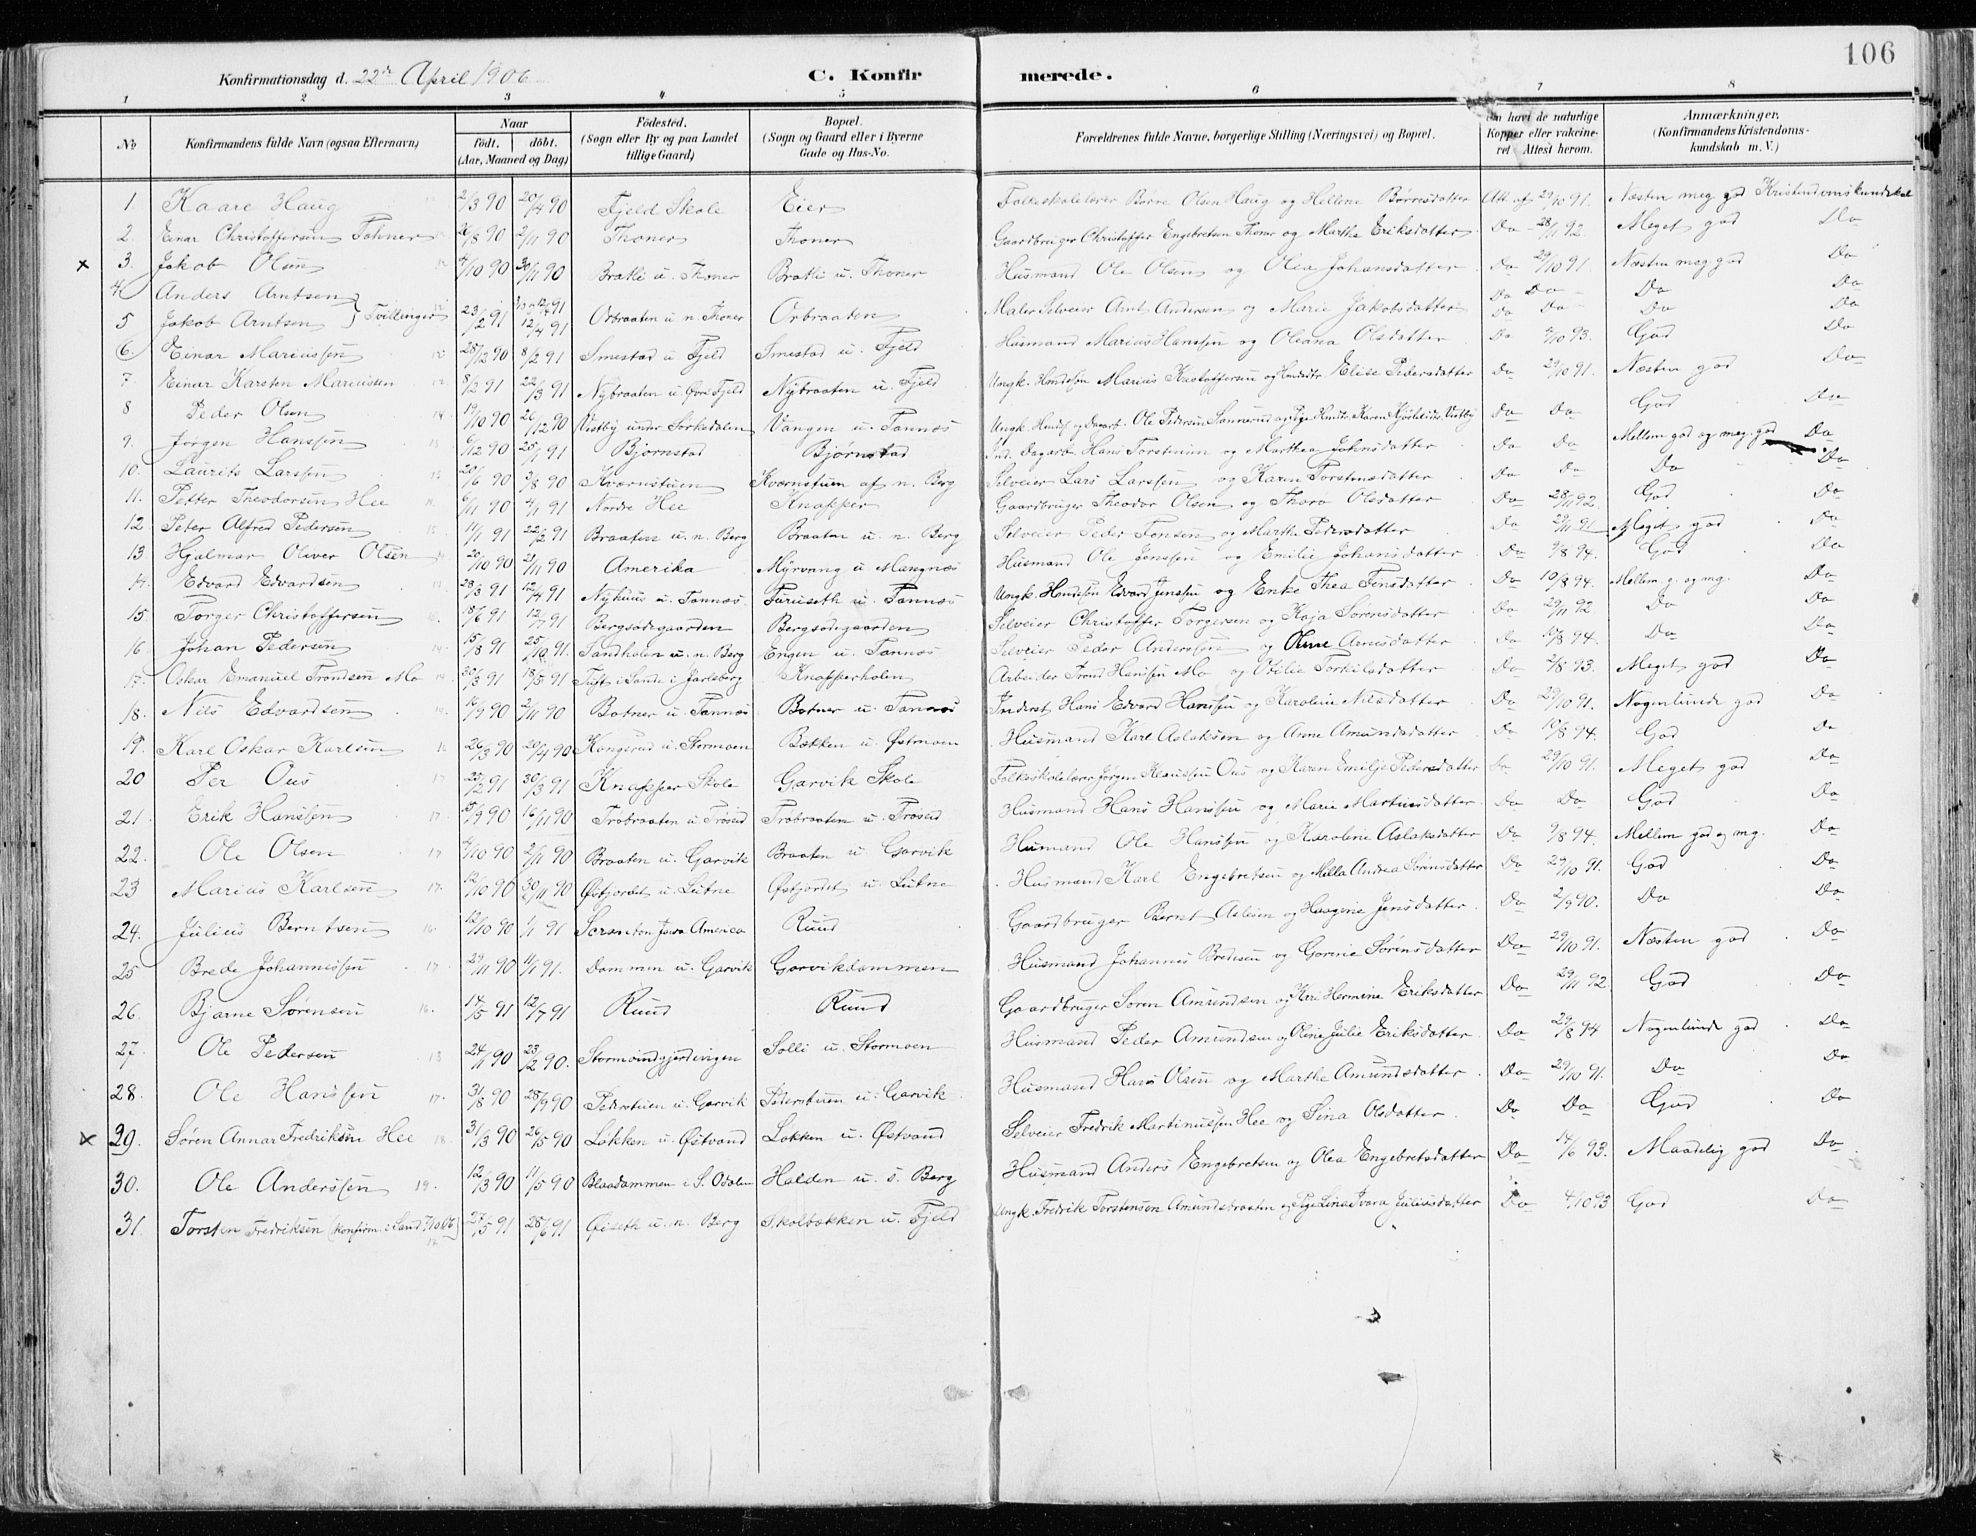 106
Konfirmationsdag d. 22de April 1906 C. Konfirmerede.
1 2 3 4 5 6 7 8
No Konfirmandens fulde Navn (ogsaa Efternavn) Naar født. døbt. (Aar, Maaned og Dag) Fødested. (Sogn eller By og paa Landet tillige Gaard) Bopæl. (Sogn og Gaard eller i Byerne Gade og Hus-No. Forældrenes fulde Navne, borgerlige Stilling (Næringsvei) og Bopæl. Om havt de naturlige Kopper eller vakcineret Attest herom. Anmærkninger. (Konfirmandens Kristendomskundskab m. V.)
1 Kaare Haug 2/3 90 20/4 90 Fjeld Skole Eier Folkeskolelærer Børre Olsen Haug og Hellene Børresdatter Att. af 29/10 91. Næsten meg god Kristendomskundskab
2. Einar Christoffersen Tohner 26/8 90 2/11 90 Thoner Thoner Gaardbruger Christoffer Engebretsen Thoner og Marthe Eriksdatter Do 28/11 92. Meget god Do
x 3. Jakob Olsen 4/10 90 30/11 90 Bratli u. Thoner Bratli u. Thoner Husmand Ole Olsen og Olea Johansdatter Do 29/10 91. Næsten meg god Do
4 Anders Arntsen } Tvillinger 23/2 91 12/4 91 Orbraaten u. n. Thoner Orbraaten Maler Selveier Arnt Andersen og Marie Jakobsdatter Do Do Do Do
5 Jakob Arntsen 12/4 91 Do Do Do Do
6. Einar Mariussen 28/12 90 8/2 91 Smestad u Fjeld Smestad u. Fjeld Husmand Marius Hanssen og Oleana Olsdatter Do 4/10 93. God Do
7. Einar Karsten Mariusen 8/2 91 22/3 91 Nybraaten u. Øvre Fjeld Nybraaten u. Fjeld Ungk. Marius Kristoffersen og Elise Pedersdatter Do 29/10 91. Næsten god Do
8 Peder Olsen 19/10 90 26/12 90 Vestby under Sørkedalen Vangen u. Tannæs Ungk. Ole Pedersen Sannerud og Pige Karen Vestby Do Do God Do
9. Jørgen Hanssen 6/12 90 25/1 91 Bjørnstad Bjørnstad Ind. Dagarb. Hans Torstensen og Marthea Johnsdatter Do Do Mellem god og meg. god Do
10. Laurits Larssen 20/6 90 3/8 90 Kværnstuen Kværnstuen af n. Berg Selveier Lars Larssen og Karen Torstensdatter Do Do Do Do
11. Petter Theodorsen Hee 6/11 90 4/1 91 Nordre Hee Knapper Gaardbruger Theodor Olsen og Thora Olsdatter Do 28/11 92. God Do
12 Peter Alfred Pedersen 11/1 91 22/2 91 Braaten u. n. Berg Braaten u. n. Berg Selveier Peder Tonsen og Marthe Pedersdatter Do 29/11 91 Meget god Do
13 Hjalmar Oliver Olsen 20/10 90 2/11 90 Amerika Myrvang u Mangnæs Husmand Ole Jenssen og Emilie Johansdatter Do 9/8 94. God Do
14. Edvard Edvardsen 28/3 91 12/4 91 Nyhuus u. Tannæs Furuseth u. Tannæs Ungk. Edvard Jenssen og Enke Thea Tensdatter Do 10/8 94. Mellem g. og mg. Do
15 Torger Christoffersen 18/6 91 12/7 91 Bergsødegaarden Bergsødegaarden Selveier Christoffer Torgersen og Kaja Sørensdatter Do 29/11 92 Do Do
16. Johan Pedersen 15/8 91 25/10 91. Sandholen u. n. Berg Engen u. Tannæs Selveier Peder Anderssen og Oline Arnesdatter Do 10/8 94. Do Do
17. Oskar Emanuel Trondsen Mo 30/3 91 18/5 91 Tuft i Sande i Jarlsberg Knapperholen Arbeider Trond Hanssen Mo og Otilie Torkilsdatter Do 2/8 93. Meget god Do
18. Nils Edvardsen 10/9 90 2/11 90 Botner u. Tannæs Botner u. Tannæs Inderst Hans Edvard Hanssen og Karoline Nilsdatter Do 29/10 91. Nogenlunde god Do
19. Karl Oskar Karlsen 26/3 90 20/4 90 Kongsrud u. Stormoen Bækken u. Østmoen Husmand Karl Aslaksen og Anne Amundsdatter Do 10/8 94. God Do
20 Per Ous 22/2 91 30/3 91 Knapper Skole Garvik Skole Folkeskolelærer Jørgen Klaussen Ous og Karen Emilje Pedersdatter Do 29/10 91. Meget god Do
21. Erik Hanssen 15/9 90 16/11 90 Trobraaten u Trøseid Trobraaten u. Trøseid Husmand Hans Hanssen og Marie Martinusdatter Do Do God Do
22. Ole Olsen 4/10 90 2/11 90 Braaten u. Garvik Braaten u Garvik Husmand Ole Hanssen og Karoline Aslaksdatter Do 9/8 94. Mellem god og mg. Do
23 Marius Karlsen 12/10 90 30/11 90 Østjordet u. Lutne Østjordet u. Lutne Husmand Karl Engebretsen og Milla Andrea Sørensdatter Do 29/10 91. God Do
24. Julius Berntsen 12/10 90 1/1 91 Scranton Jowa America Ruud Gaardbruger Bernt Aslesen og Haagine Jensdatter Do 2/9 90. Do Do
25 Brede Johannessen 29/11 90 11/1 91. Dammen u. Garvik Garvikdammen Husmand Johannes Bredesen og Gorine Sørensdatter Do 29/10 91. Næsten god Do
26. Bjarne Sørensen 14/5 91 12/7 91 Ruud Ruud Gaardbruger Søren Amundsen og Kari Hermine Eriksdatter Do 29/11 92. God Do
27. Ole Pedersen 24/1 90 23/2 90. Stormoindgjerdingen Solli u. Stormoen Husmand Peder Amundsen og Oline Julie Eriksdatter Do 29/8 94 Nogenlunde god Do
28. Ole Hanssen 31/8 90 28/9 90 Pederstuen u. Garvik Pederstuen u. Garvik Husmand Hans Olsen og Marthe Amundsdatter Do 29/10 91. Do Do
x 29. Søren Annar Fredriksen Hee 31/3 90 26/5 90 Løkken u. Østvand Løkken u. Østvand Selveier Fredrik Martinussen Hee og Sina Olsdatter Do Do God Do
30. Ole Anderssen 12/3 90 11/5 90 Blaadammen i S. Odalen Halden u. s. Berg Husmand Anders Engebretsen og Olea Engebretsdatter Do 14/6 93. Maadelig god Do
31. Torsten Fredriksen (konfirm. i Sand 7/10 06) 27/5 91 28/6 91 Øiseth u. n. Berg Skolbækken u. Fjeld Ungk. Fredrik Torstensen Amundsbraaten og Pige Lina Ivara Juliusdatter Do 4/10 93 God Do